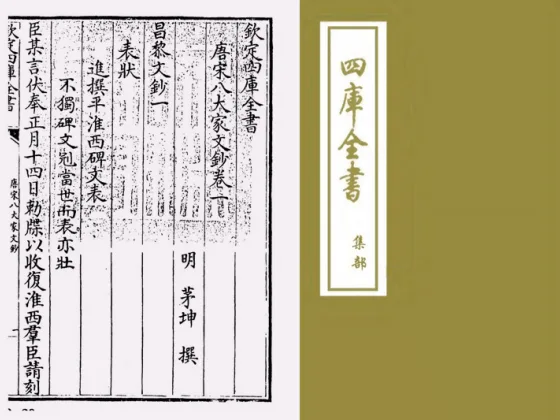 欽定四庫全書
唐宋八大家文鈔卷一
明 茅坤 撰
昌黎文鈔一
表狀
進撰平淮西碑文表
不獨碑文剋當世而表亦壯
臣某言伏奉正月十四日勅牒以收復淮西羣臣請刻
欽定四庫全書
唐宋八大家文鈔
四庫全書
集部